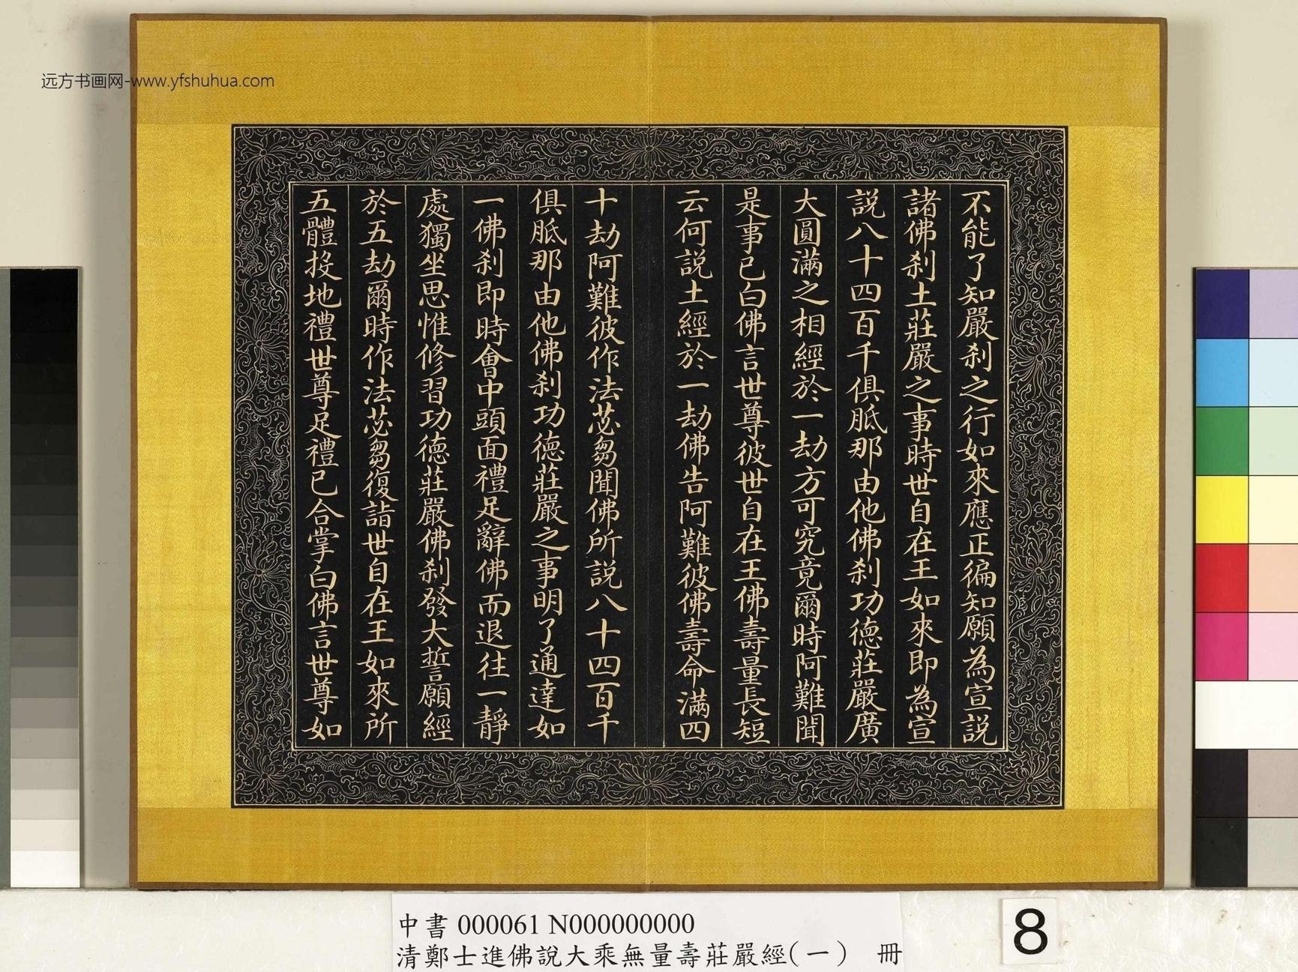 远方书画网-www.yfshuhua.com
不能了知嚴刹之行如來應正徧知願為宣說
諸佛刹土莊嚴之事時世自在王如來即為宣
說八十四百千俱胝那由他佛刹功德莊嚴廣
大圓滿之相經於一劫方可究竟爾時阿難聞
是事已白佛言世尊彼世自在王佛壽量長短
云何說土經於一劫佛告阿難彼佛壽命滿四
十劫阿難彼作法苾芻聞佛所說八十四百千
俱胝那由他佛刹功德莊嚴之事明了通達如
一佛刹即時會中頭面禮足辭佛而退往一靜
處獨坐思惟修習功德莊嚴佛刹發大誓願經
於五劫爾時作法苾芻復詣世自在王如來所
五體投地禮世尊足禮已合掌白佛言世尊如
中書 000061 N000000000
清鄭士進佛說大乘無量壽莊嚴經(一) 冊
8